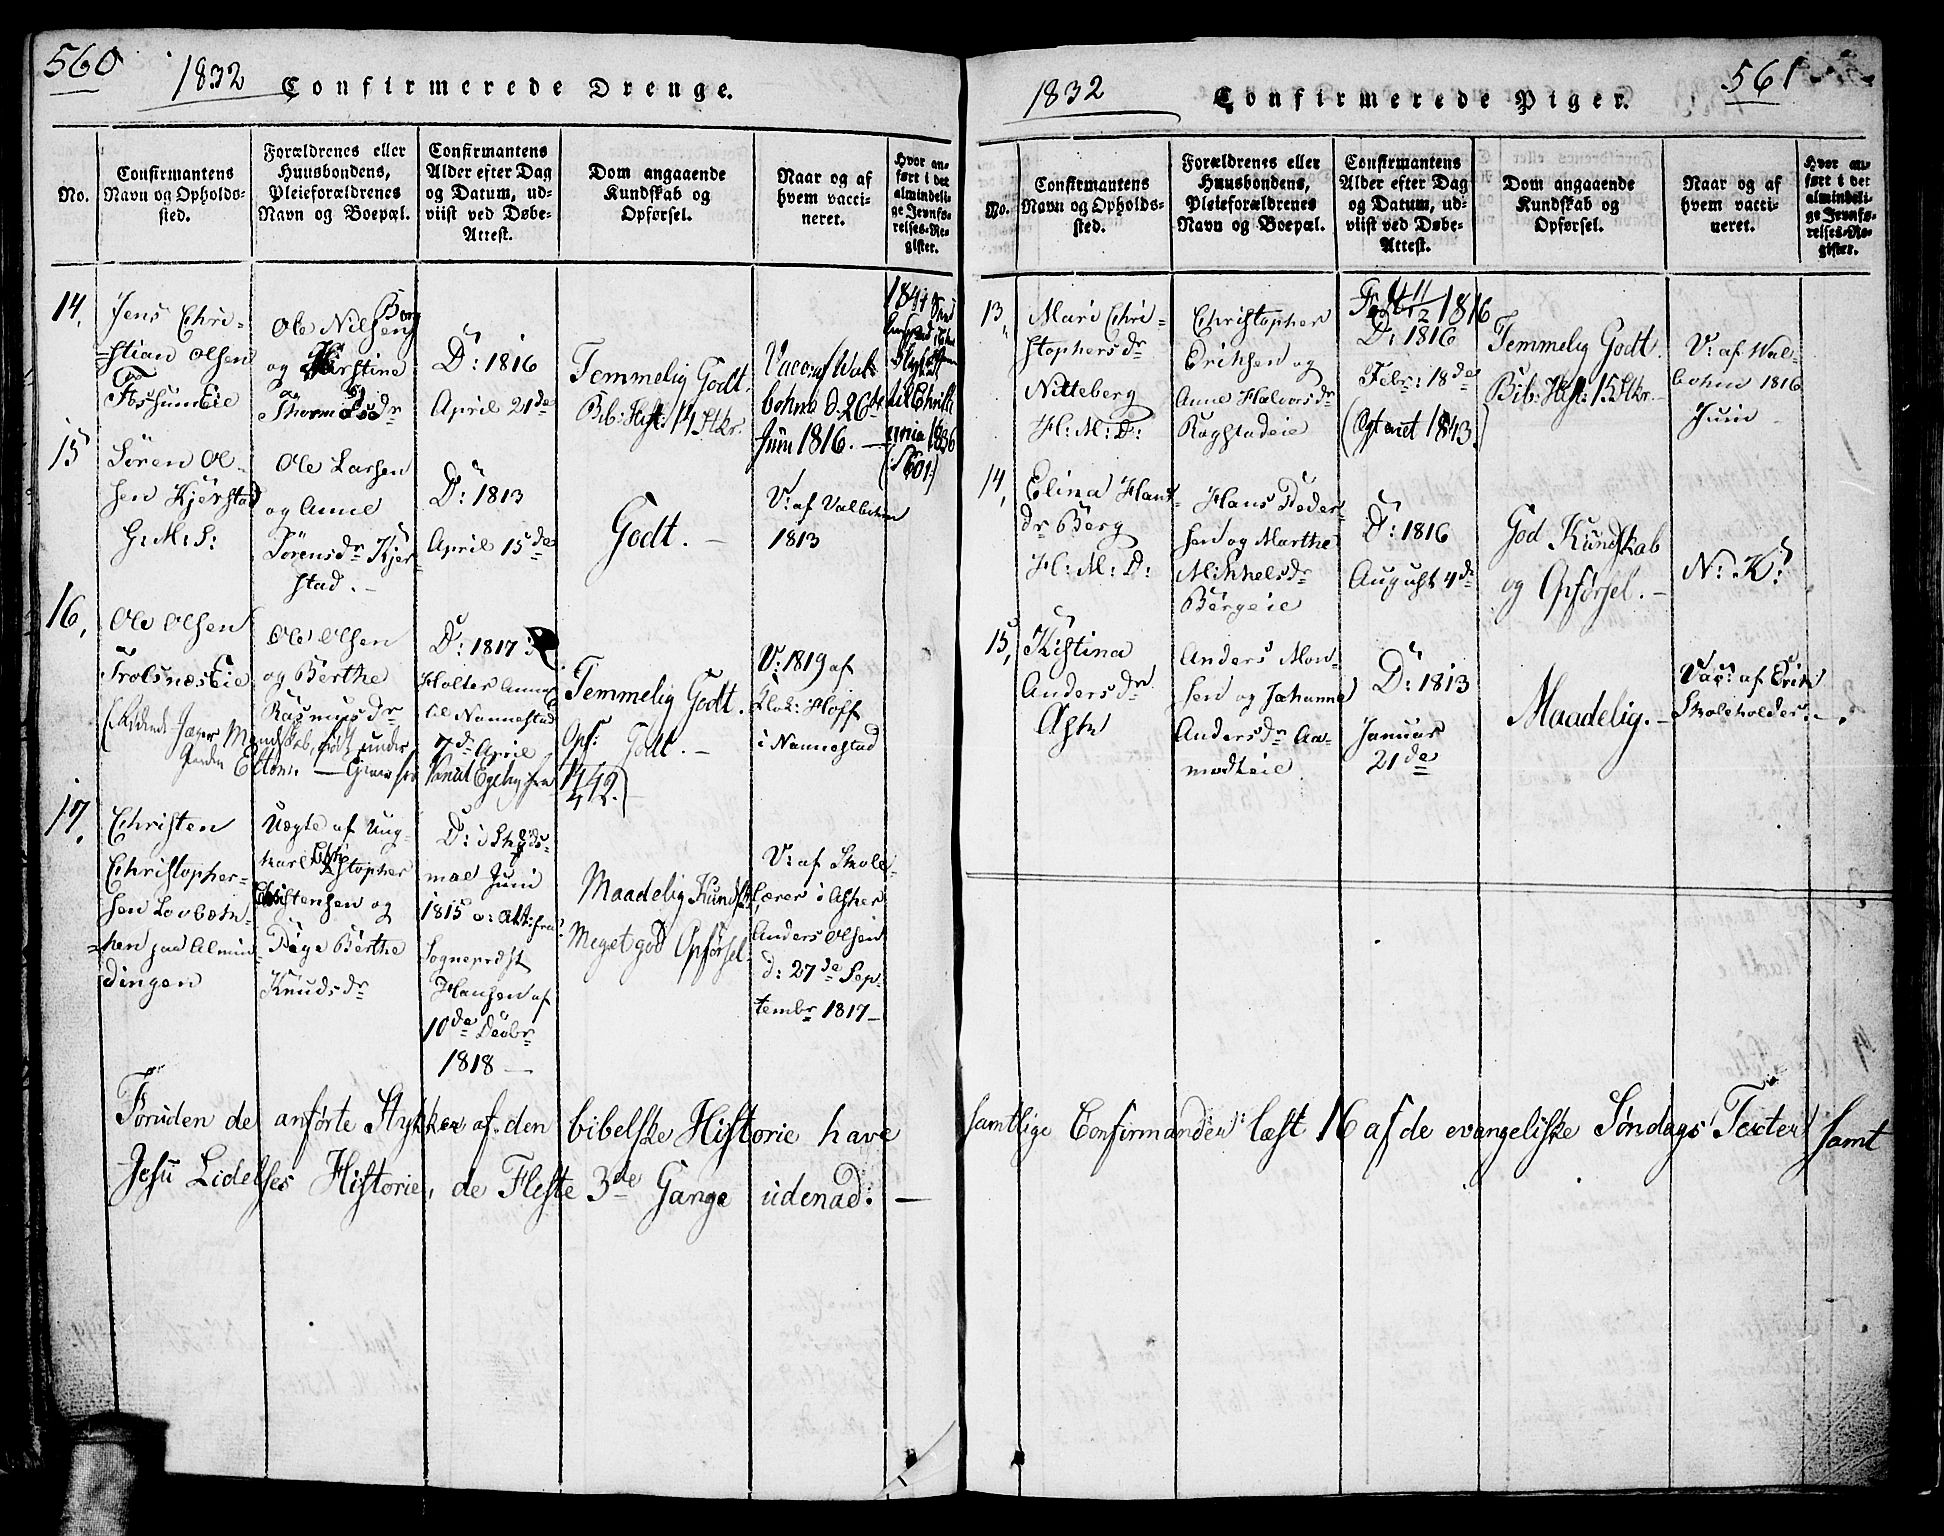 560
1832
Confirmerede Drenge.
No.
Confirmantens
Navn og Opholds-
sted.
Forældrenes eller
Huusbondens,
Pleieforældrenes
Navn og Boepæl.
Confirmantens
Alder efter Dag
og Datum, ud-
viist ved Døbe-
Attest.
Dom angaaende
Kundskab og
Opførsel.
Naar og af
hvem vacci-
neret.
Hvor an-
ført i det
almindeli-
ge Jevnfø-
relses-Re-
gister.
14.
Jens Chri-
stian Olsen
Fossumeie
Ole Nilsen Borg
og Kjerstine
Thormodsdr
D: 1816
April 21de
Temmelig Godt.
Bib: Hist: 14 Stkr.
Vacc: af Wal-
bohm d. 26te
Juni 1816. —
1836
S 601.
15
Søren Ol-
sen Kjerstad
G: M: S:
Ole Larsen
og Anne
Sørensdr Kjer-
stad. -
D: 1813
April 15de
Godt. -
V: af Valbohm
1813
16.
Ole Olsen
Trolsnæseie
Ole Olsen
og Berthe
Rasmusdr
D: 1817
Holter Annex
til Nannestad
7de April
Temmelig Godt.
Opf: Godt. -
V: 1819 af
Klok: Hoff
i Nannestad
17.
Christen
Christopher-
sen Løvbæk-
ken paa Almin-
dingen
Uægte af Ung-
karl Christopher
Christensen og
Pige Berthe
Knudsdr
D: i Skeds-
moe Juni
1815 e: Att: fra
Sognepræst
Hansen af
10de Decbr
1818 —
Maadelig Kundsk:
Meget god Opførsel.
V: af Skole-
lærer i Asker
Anders Olsen
d: 27de Sep-
tembr 1817 —
Foruden de anførte Stykker af den bibelske Historie have
Jesu Lidelses Historie, de Fleste 3de Gange udenad. —
1832
Confirmerede Piger.
561
No.
Confirmantens
Navn og Opholds-
sted.
Forældrenes eller
Huusbondens,
Pleieforældrenes
Navn og Boepæl.
Confirmantens
Alder efter Dag
og Datum, ud-
viist ved Døbe-
Attest.
Dom angaaende
Kundskab og
Opførsel.
Naar og af
hvem vacci-
neret.
Hvor an-
ført i det
almindeli-
ge Jevnfø-
relses-Re-
gister.
13.
Mari Chri-
stophersdr
Nitteberg
H: M: D:
Christopher
Eriksen og
Anne Halvorsdr
Ragstadeie
1816
D: 1816
Febr: 18de
1843
Temmelig Godt.
Bib: Hist: 15 Stkr. -
V: af Wal-
bohm 1816
Juni
14.
Elina Hans-
dr Berg
H: M: D:
Hans Peder-
sen og Marthe
Mikkelsdr
Bergeie
D: 1816
August 4de
God Kundskab
og Opførsel. -
N: K:
15.
Kistina
Andersdr
Ask
Anders Mon-
sen og Johanne
Andersdr Aa-
modteie
D: 1813
Januar
21de
Maadelig. -
Vac: af Erik
Skoleholder. -
samtlige Confirmander læst 16 af de evangeliske Søndags Texter samt